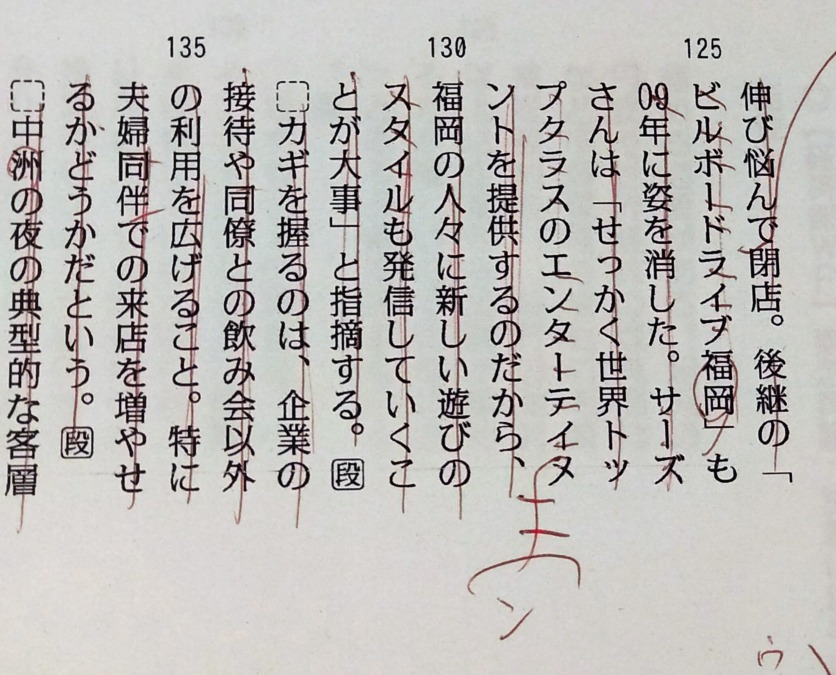 125
伸び悩んで閉店。後継の「
ビルボードライブ福岡」も
09年に姿を消した。サーズ
さんは「せっかく世界トッ
プタラスのエンターティヌ
ントを提供するのだから、
130
福岡の人々に新しい遊びの
スタイルも発信していくこ
とが大事」と指摘する。段
カギを握るのは、企業の
接待や同僚との飲み会以外
135
の利用を広げること。特に
夫婦同伴での来店を増やせ
るかどうかだという。段
中洲の夜の典型的な客層
ン
ウ